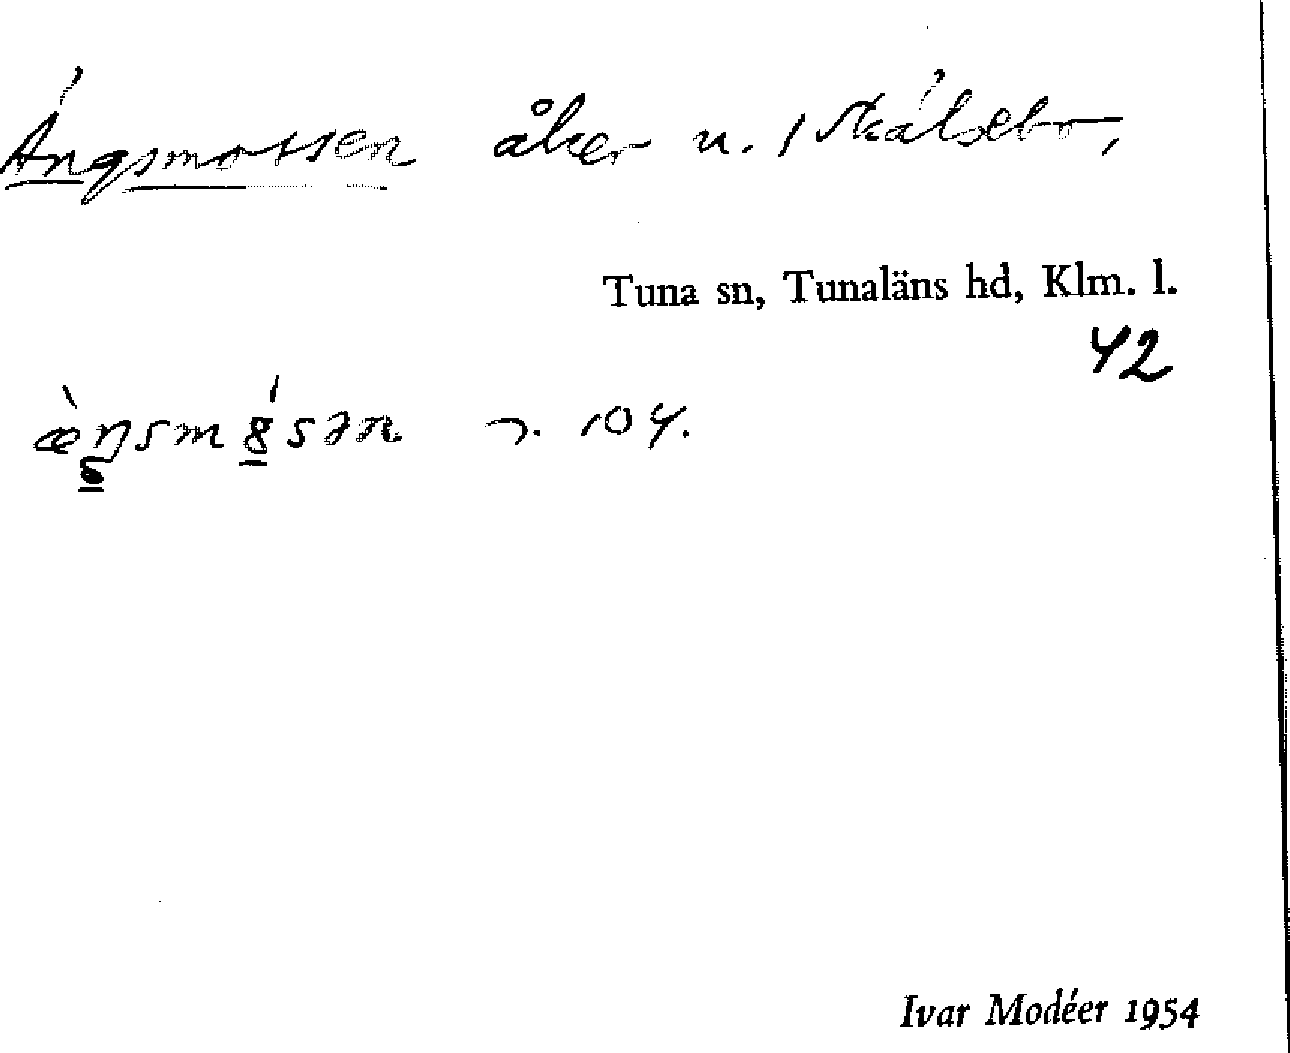 Ängsmossen åker u. 1 Skälsebo,
Tuna sn, Tunaläns hd, Klm. l.
42
104.
Ivar Modéer 1954